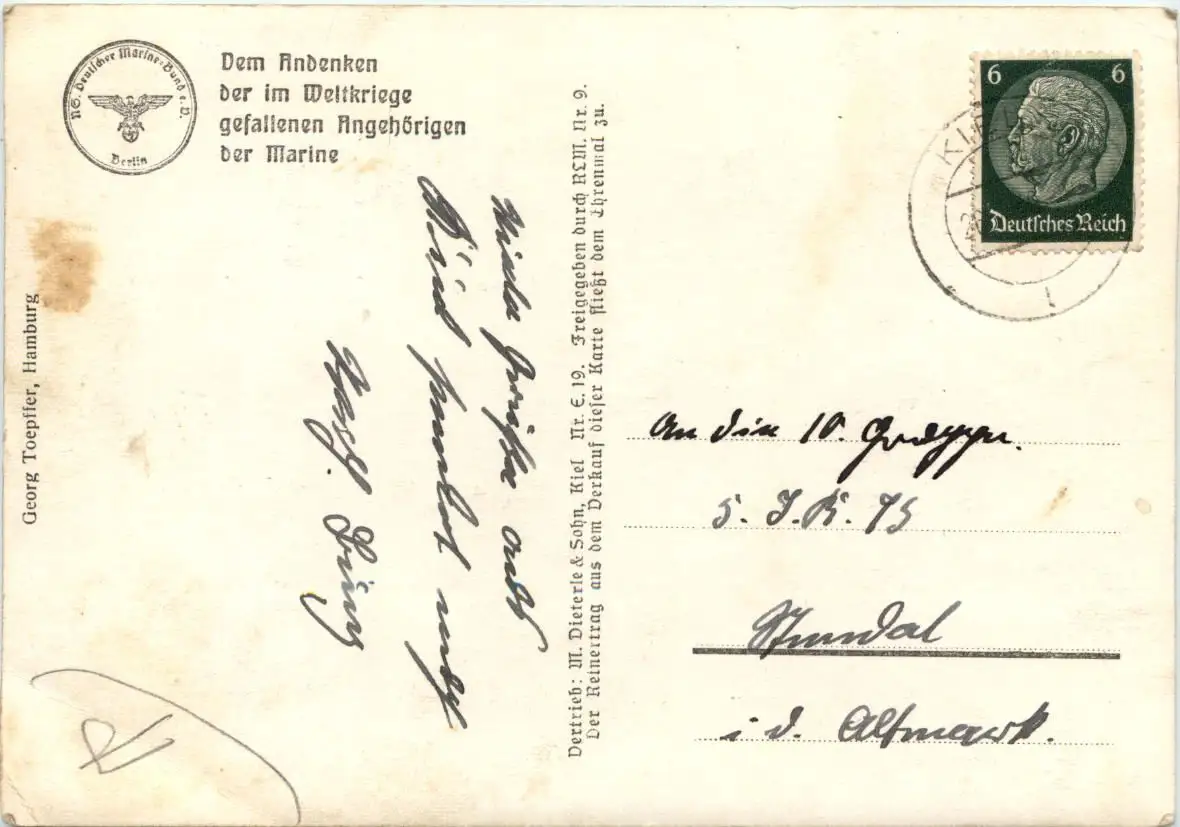 NS. Deutscher Marine-Bund e.V.
Berlin
Dem Andenken
der im Weltkriege
gefallenen Angehörigen
der Marine
Georg Toepffer, Hamburg
Viele Grüße aus
Kiel sendet
Vertrieb: M. Dieterle & Sohn, Kiel Nr. E. 19. Freigegeben durch RLM. Nr. 9.
Der Reinertrag aus dem Verkauf dieser Karte fließt dem Ehrenmal zu.
6 6
Deutsches Reich
KI
An die 10. Gruppe.
5. I.R. 75
Stendal
i. d. Altmark.